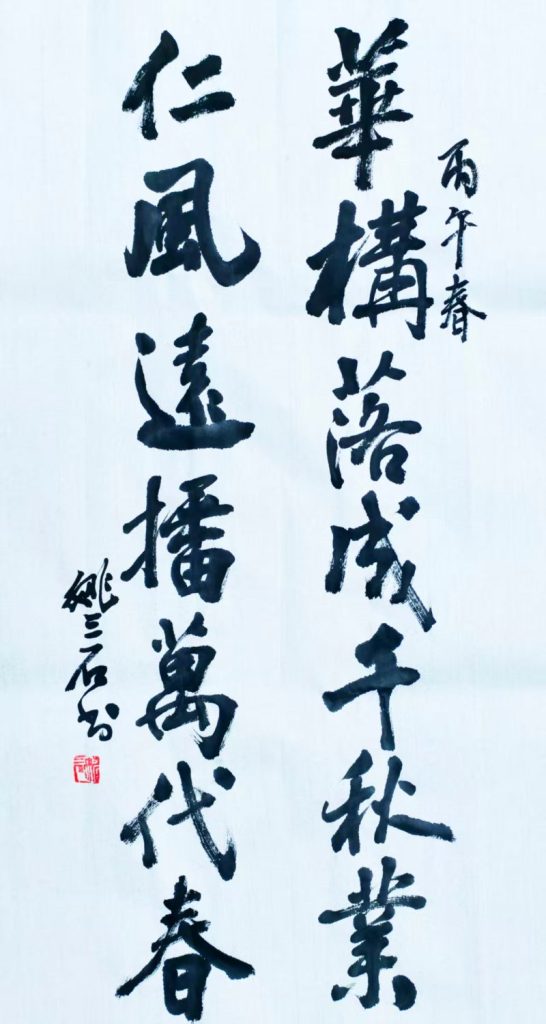 丙午春
華構落成千秋業
仁風遠播萬代春
姚三石书